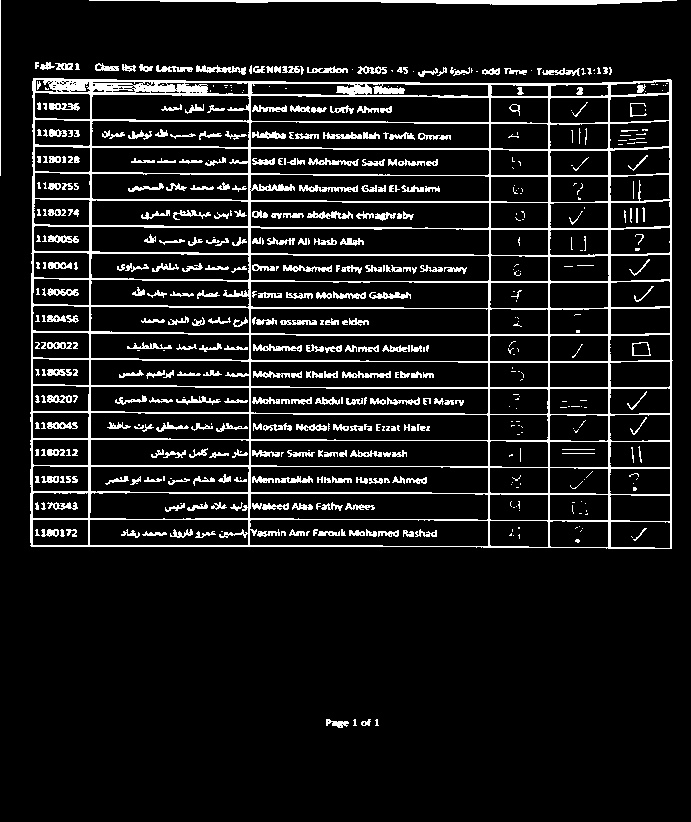 Fall-2021 Class list for Lecture Marketing (GENN326) Location : 20105 - 45 - الجيزة الرئيسي - odd Time : Tuesday(11:13)
Student Name English Name 1 2 3
1180236 احمد معتز لطفى احمد Ahmed Motaar Lotfy Ahmed 9 ✓ □
1180333 حبيبة عصام حسب الله توفيق عمران Habiba Essam Hassaballah Tawfik Omran 4 |||
1180128 سعد الدين محمد سعد محمد Saad El-din Mohamed Saad Mohamed 5 ✓ ✓
1180255 عبد الله محمد جلال السحيمى AbdAllah Mohammed Galal El-Suhaimi 6 ? ||
1180274 علا ايمن عبدالفتاح المغربى Ola ayman abdelftah elmaghraby 0 ✓ ||||
1180056 على شريف على حسب الله Ali Sharif Ali Hasb Allah 1 □ ?
1180041 عمر محمد فتحى شلقامى شعراوى Omar Mohamed Fathy Shalkkamy Shaarawy ✓
1180606 فاطمة عصام محمد جاب الله Fatma Issam Mohamed Gaballah ✓
1180456 فرح اسامه زين الدين محمد farah ossama zein elden 2 ?
2200022 محمد السيد احمد عبداللطيف Mohamed Elsayed Ahmed Abdellatif 6 ✓ □
1180552 محمد خالد محمد ابراهيم خميس Mohamed Khaled Mohamed Ebrahim 5
1180207 محمد عبداللطيف محمد المصرى Mohammed Abdul Latif Mohamed El Masry ✓
1180045 مصطفى نضال مصطفى عزت حافظ Mostafa Neddal Mostafa Ezzat Hafez 3 ✓ ✓
1180212 منار سمير كامل ابوهواش Manar Samir Kamel AboHawash ||
1180155 منه الله هشام حسن احمد ابو النصر Mennatallah Hisham Hassan Ahmed 8 ✓ ?
1170343 وليد علاء فتحى انيس Waleed Alaa Fathy Anees 9 □
1180172 ياسمين عمرو فاروق محمد رشاد Yasmin Amr Farouk Mohamed Rashad 4 ? ✓
Page 1 of 1